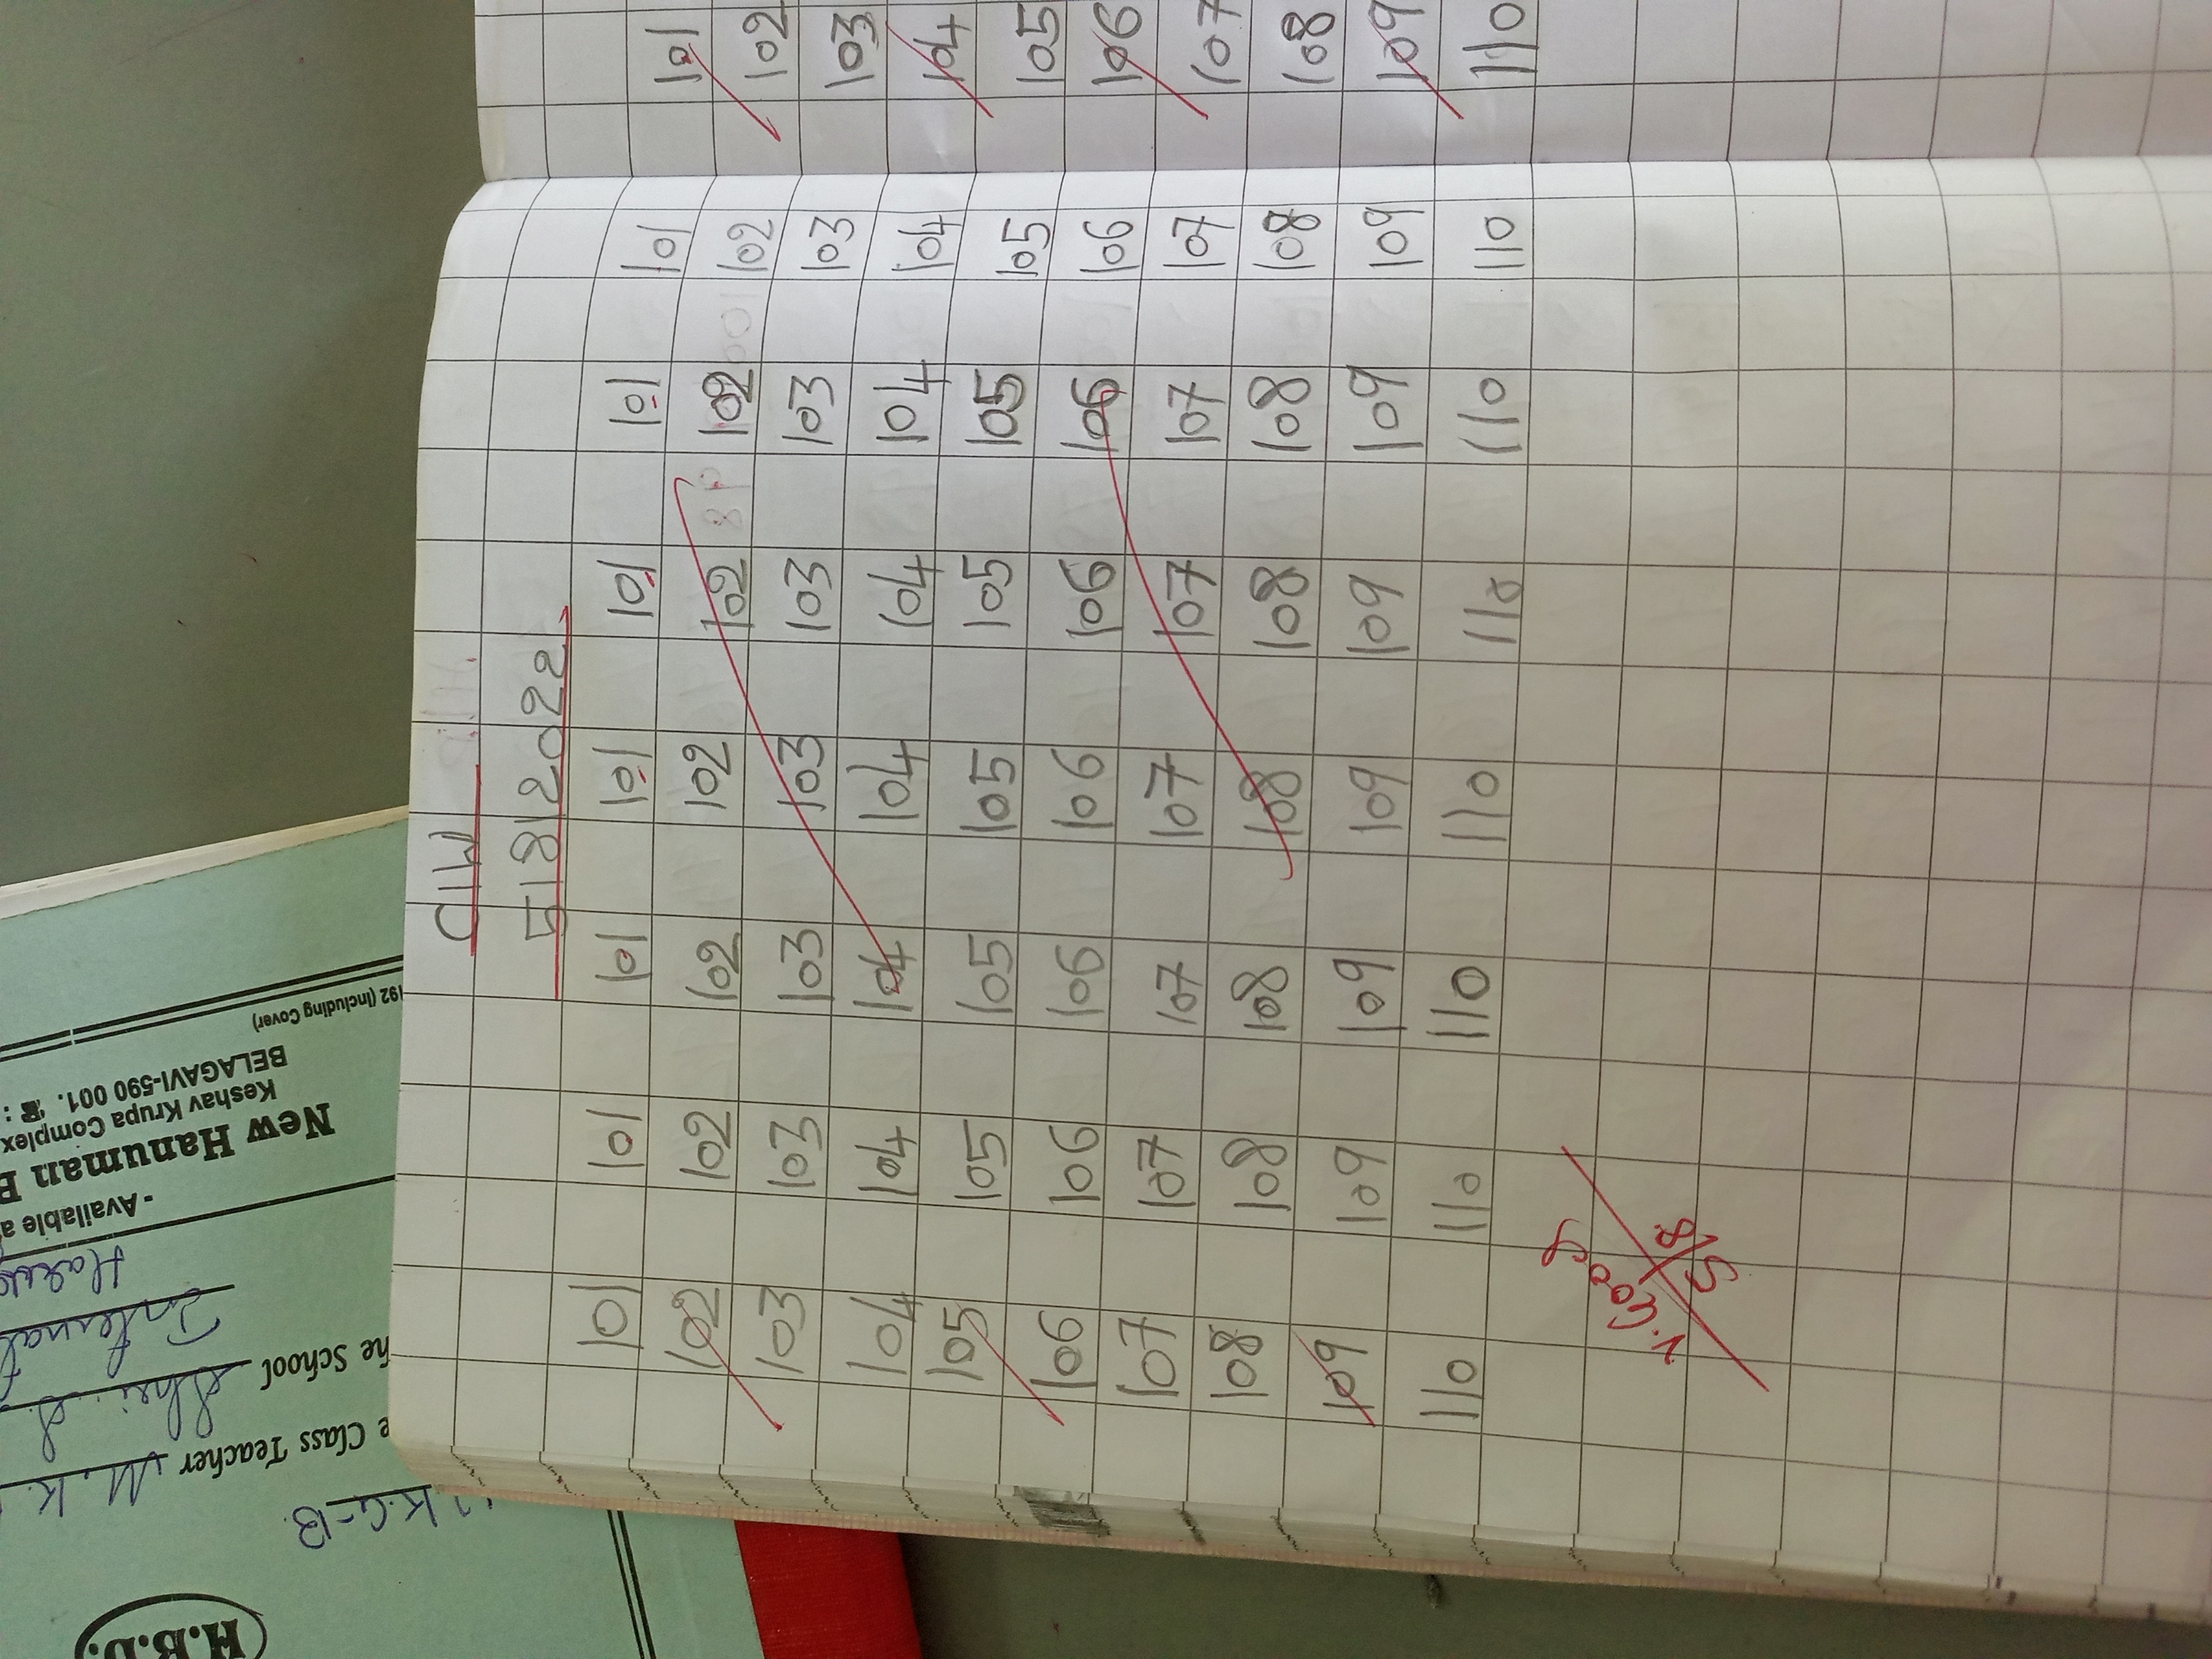 C|W
5|8|2022
101 101 101 101 101 101 101
102 102 102 102 102 102 102
103 103 103 103 103 103 103
104 104 104 104 104 104 104
105 105 105 105 105 105 105
106 106 106 106 106 106 106
107 107 107 107 107 107 107
108 108 108 108 108 108 108
109 109 109 109 109 109 109
110 110 110 110 110 110 110
V. Good
5/8
101
102
103
104
105
106
107
108
109
110
K.G-B.
Class Teacher M.K.
School Shri
- Available
New Hanuman
Keshav Krupa Complex
BELAGAVI-590 001. ☎ :
192 (Including Cover)